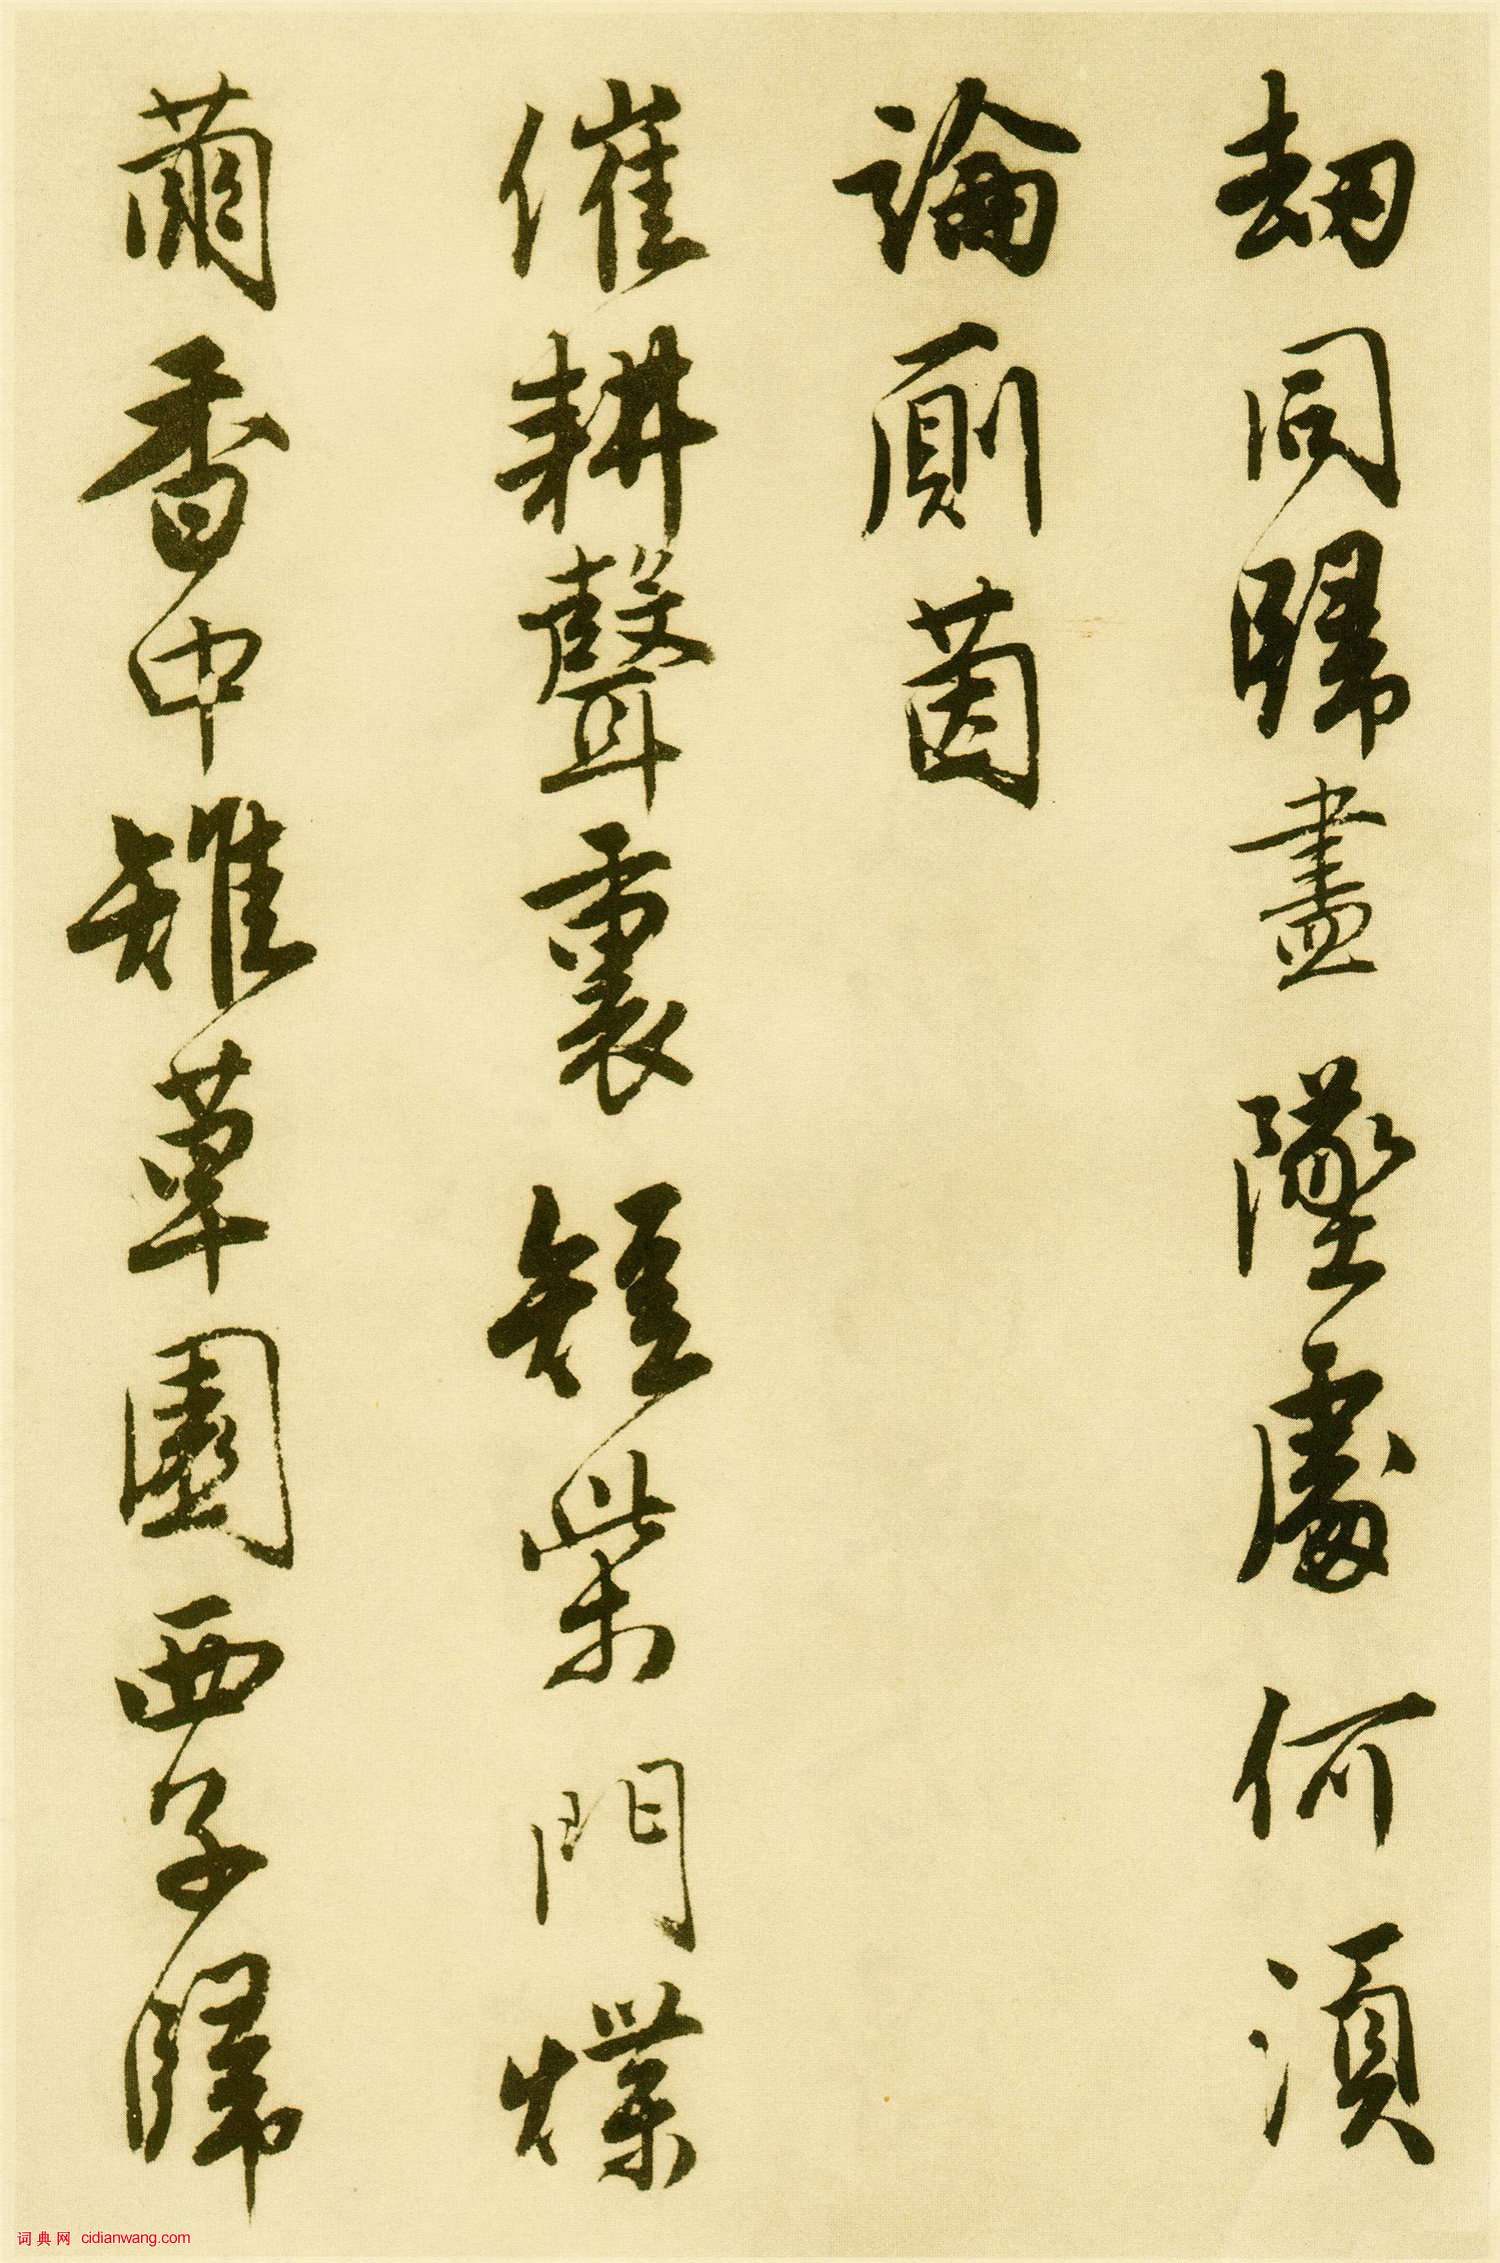 劫同歸盡墜處何須
論厠茵
催耕聲裏短柴門煠
蕳香中雉草園西子歸
词典网 cidianwang.com